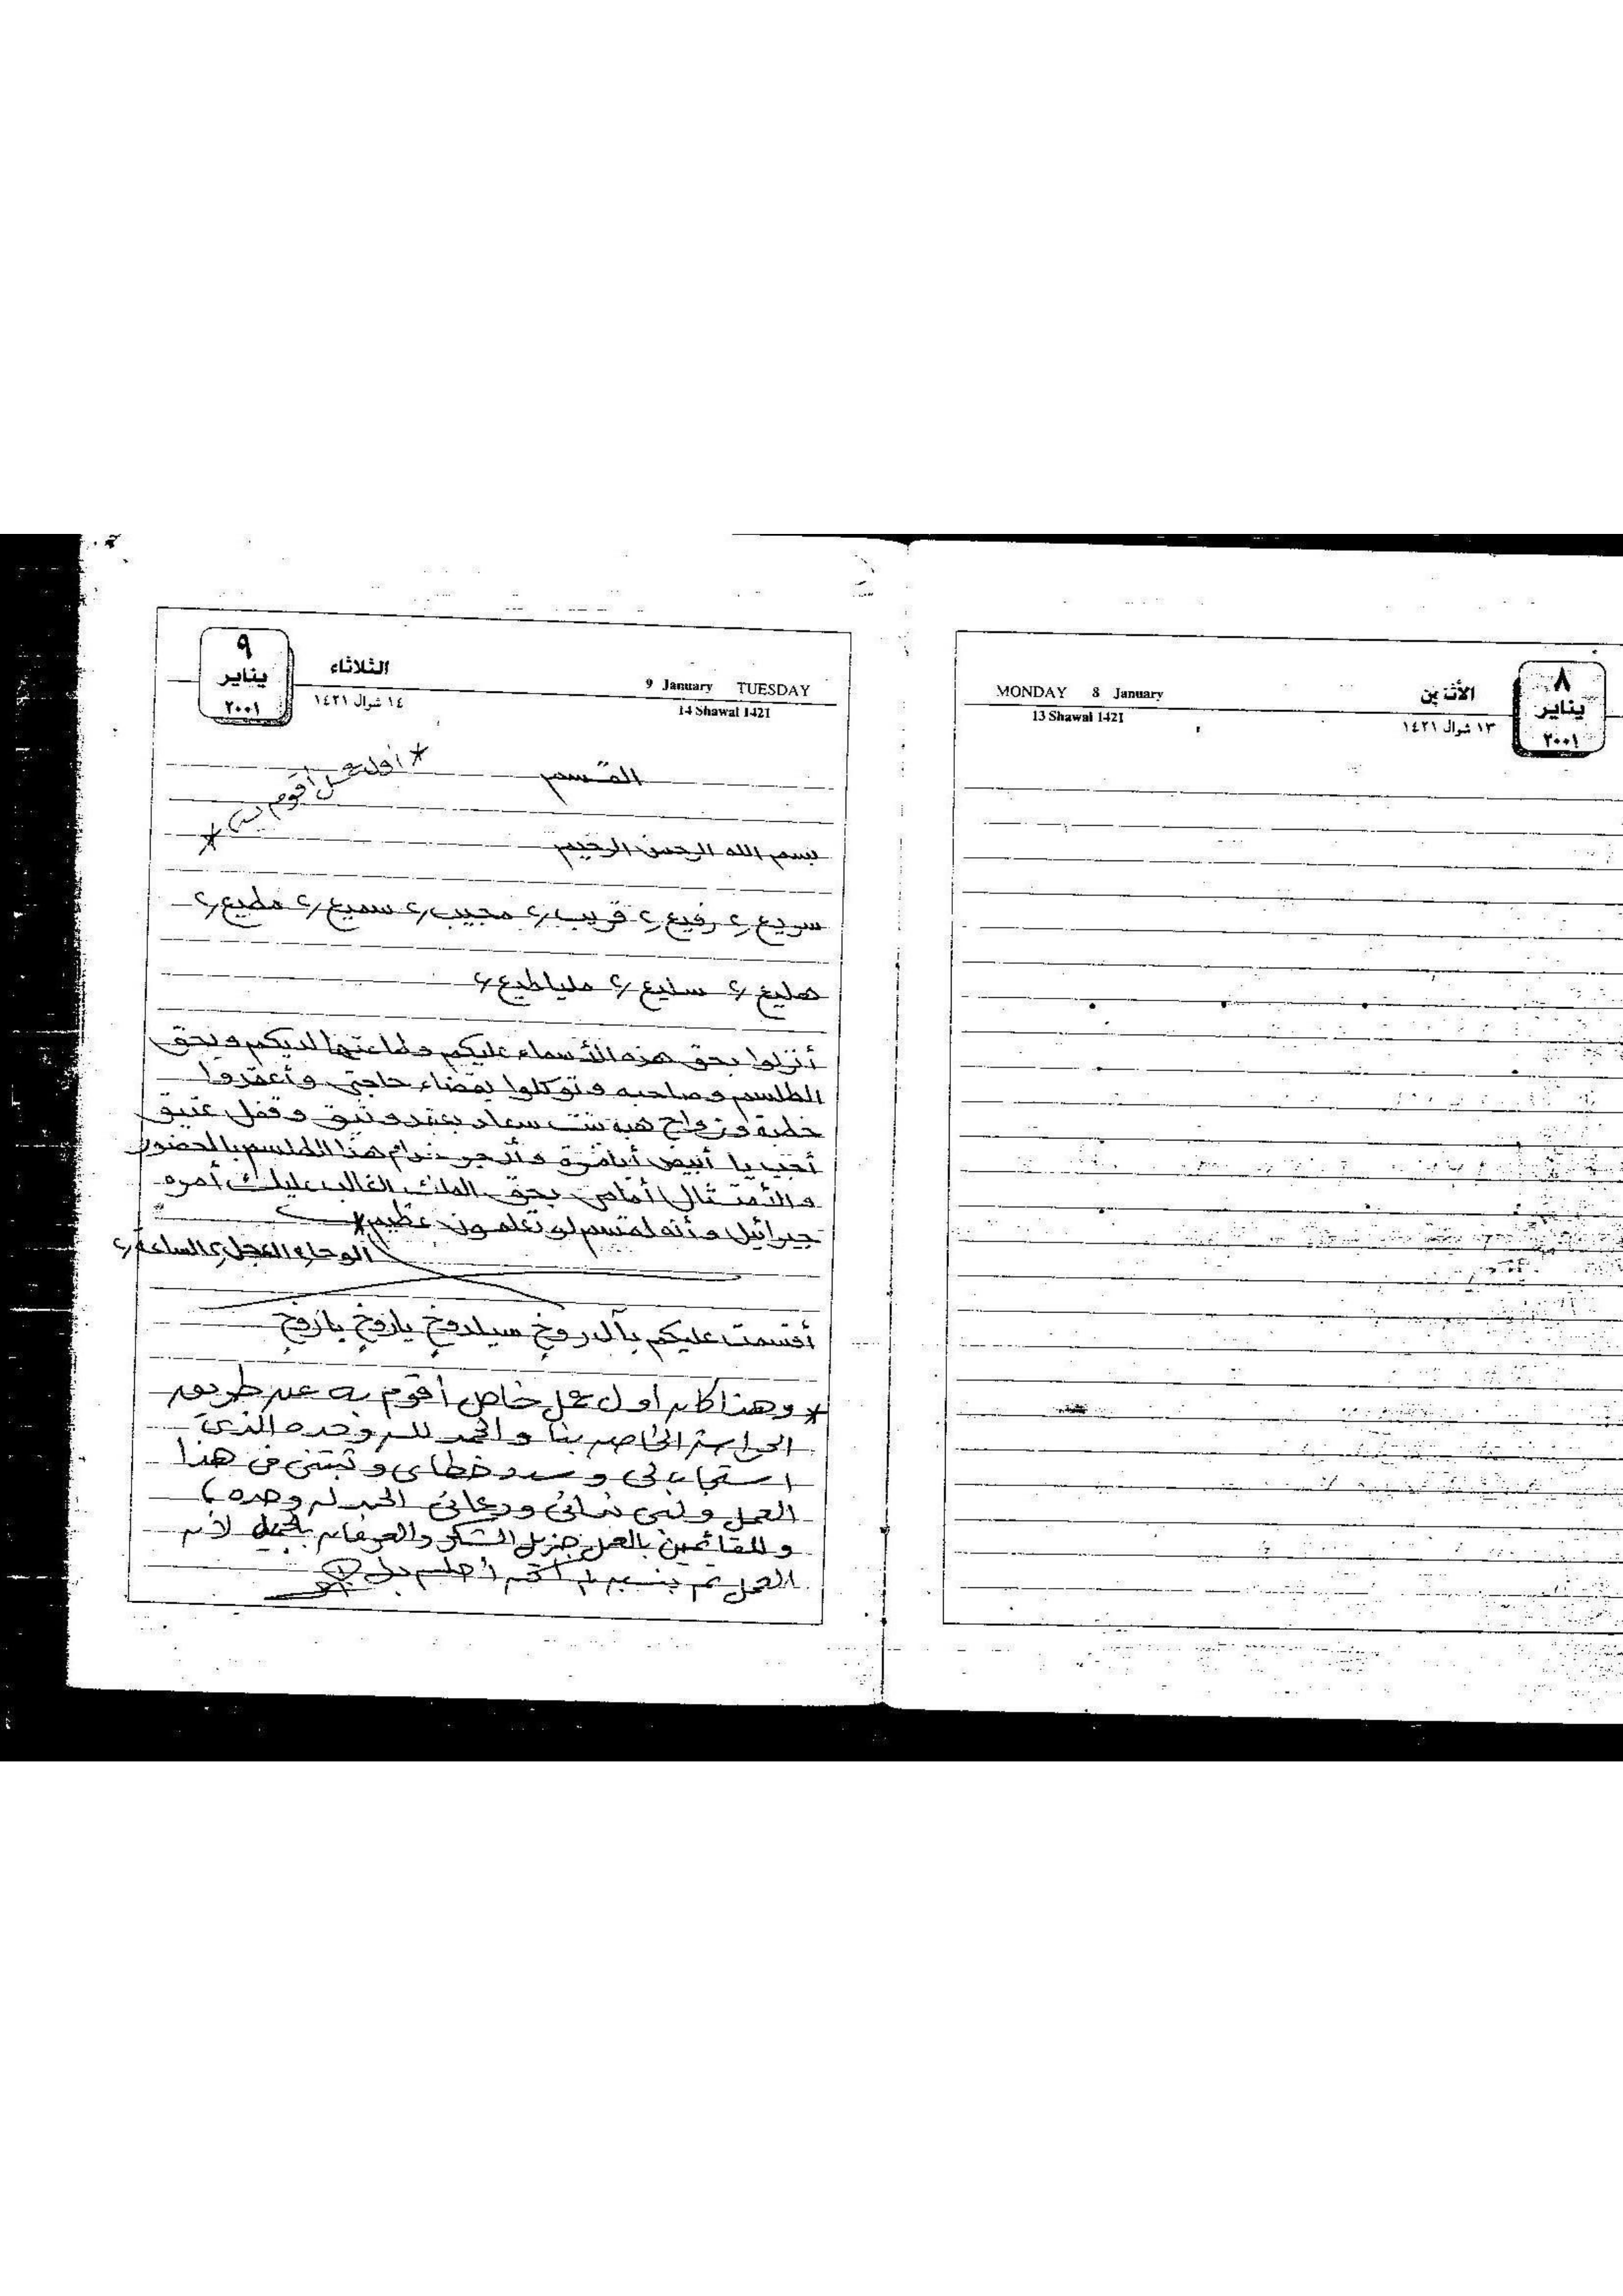 ٨
يناير
٢٠٠١
الأثنين
١٣ شوال ١٤٢١
MONDAY 8 January
13 Shawal 1421
٩
يناير
٢٠٠١
الثلاثاء
١٤ شوال ١٤٢١
9 January TUESDAY
14 Shawal 1421
القسم
* أول عمل أقوم به *
بسم الله الرحمن الرحيم
سريع، رفيع، قريب، مجيب، سميع، مطيع،
هليع، سليع، ملياطيع،
أنزلوا بحق هذه الأسماء عليكم وطاعتها لديكم وبحق
الطلسم وصاحبه وتوكلوا بقضاء حاجتي وأعقدوا
خطبة وزواج هبه بنت سعاد بعقد وثيق وقفل عتيق
أجب يا أبيض أبا مرة وأزجر خدام هذا الطلسم بالحضور
والأمتثال أمامي بحق الملك الغالب عليك أمره
جبرائيل وأنه لقسم لو تعلمون عظيم *
الوحا، العجل، الساعة،
أقسمت عليكم بآل دروخ سيلدوخ يازوخ يازوخ
* وهذا كان أول عمل خاص أقوم به عن طريق
الخاصه بنا والحمد لله وحده الذي
استجاب لي وسدد خطاي وثبتني في هذا
العمل ولبى ندائي ودعائي الحمد له وحده،
وللقائمين بالعمل جزيل الشكر والعرفان بالجميل لأن
العمل تم بنسبة لم أكن أحلم بها